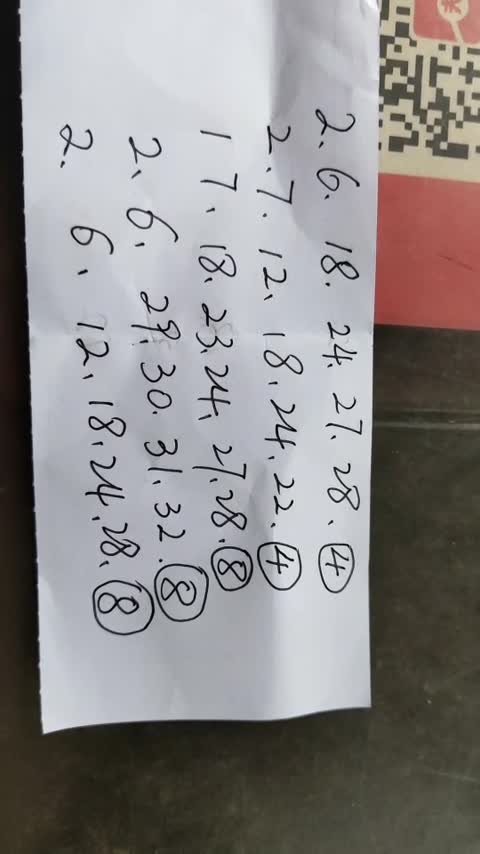 2、6、18、24、27、28、④
2、7、12、18、24、22、④
1 7、18、23、24、27、28、⑧
2、6、29、30、31、32、⑧
2、6、12、18、24、28、⑧